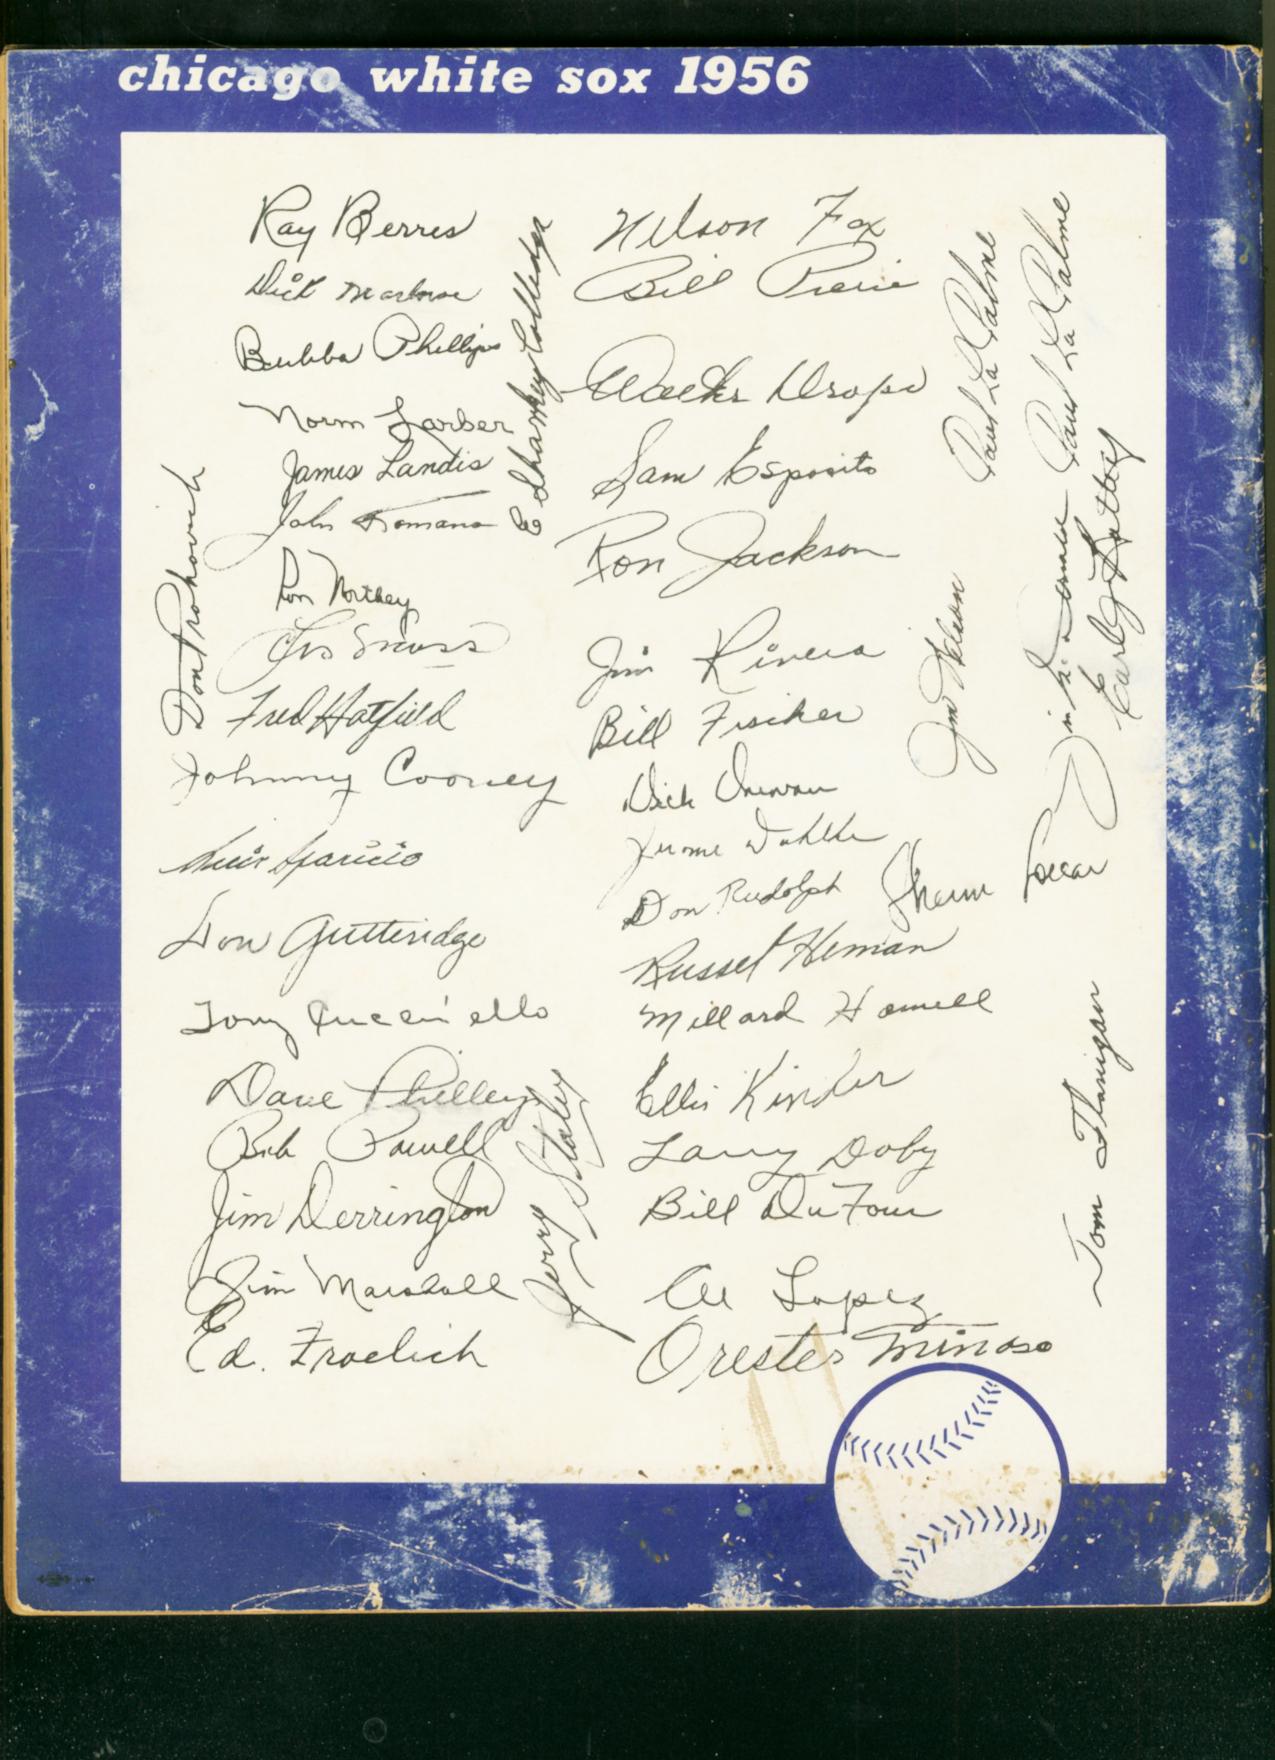 chicago white sox 1956
Ray Berres
Dick
Bubba Phillips
Norm Larker
James Landis
John Romano
Ron Northey
Les Moss
Fred Hatfield
Johnny Cooney
Luis Aparicio
Don Gutteridge
Tony Cuccinello
Dave Philley
Bob Powell
Jim Derrington
Jim Marshall
Ed. Froelich
Don Prohovich
Sharkey Colledge
Jerry Staley
Nelson Fox
Bill Pierce
Walt Dropo
Sam Esposito
Ron Jackson
Jim Rivera
Bill Fischer
Dick Donovan
Jerome Dahlke
Don Rudolph
Russel Heman
Millard Howell
Ellis Kinder
Larry Doby
Bill DuFour
Al Lopez
Orestes Minoso
Paul La Palme
Paul La Palme
Jim Wilson
Earl Battey
Sherm Lollar
Tom Flanigan